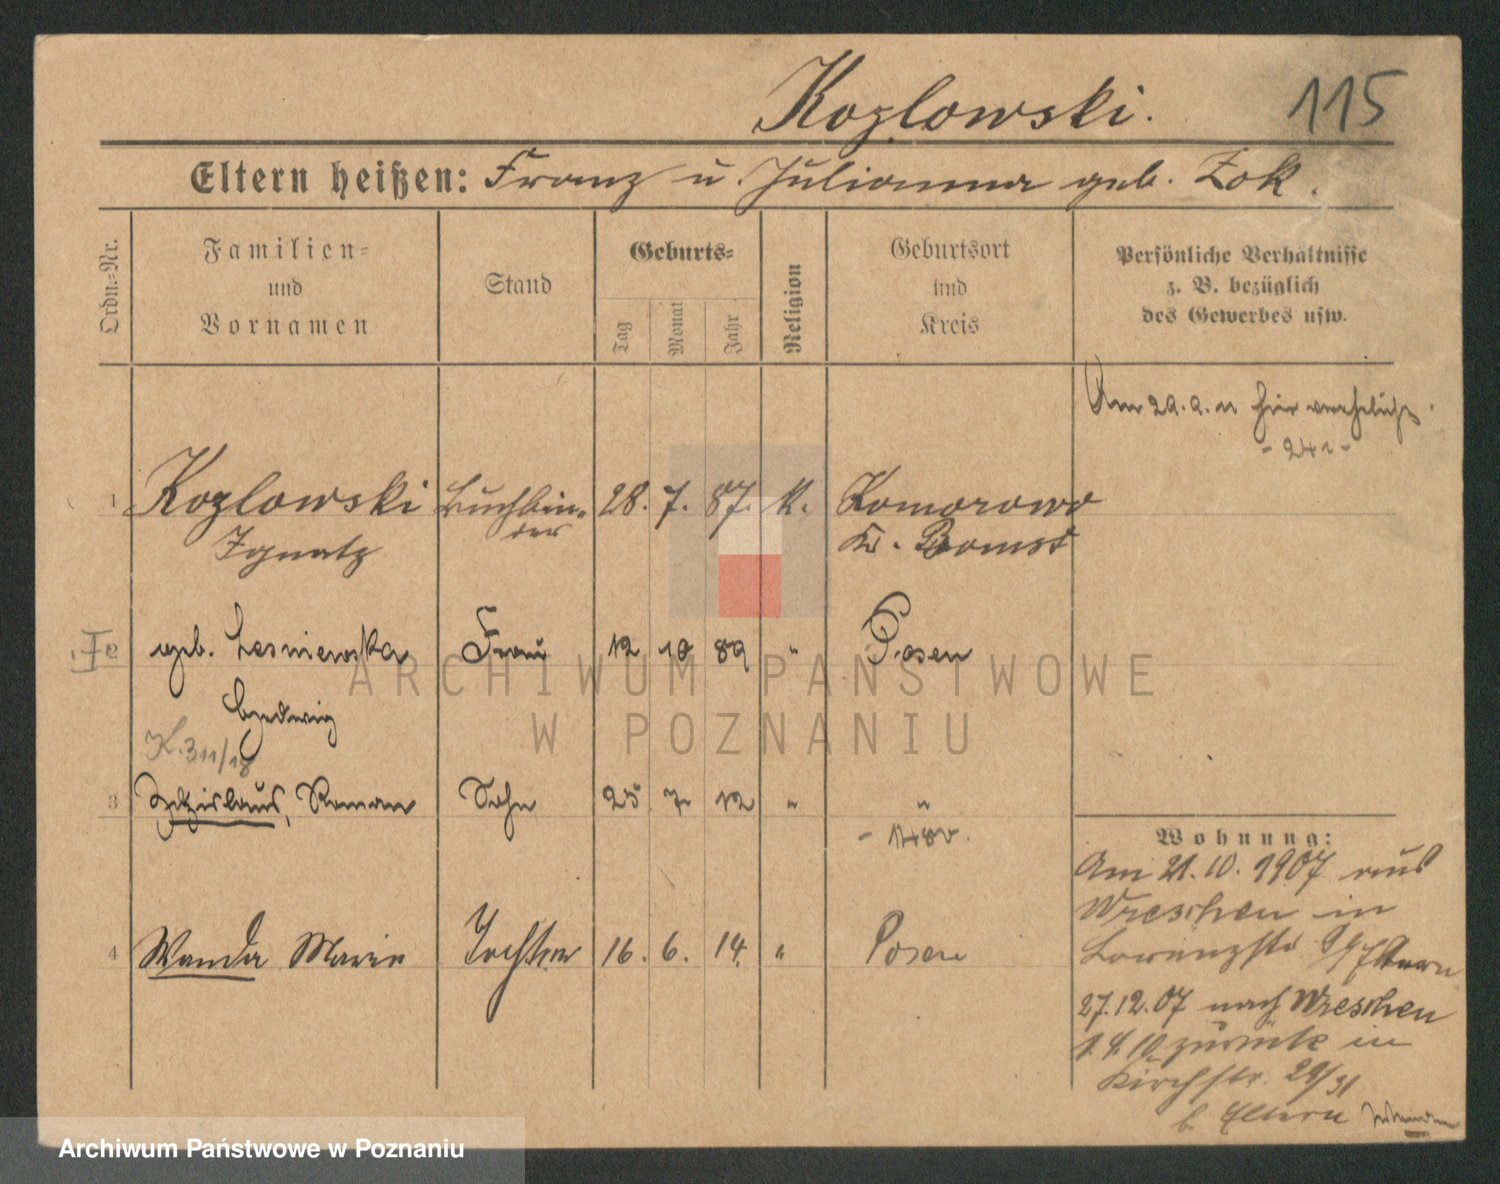 Kozlowski.
115
Eltern heißen: Franz u. Julianna geb. Zok.
Ordn.=Nr.
Familien=
und
Vornamen
Stand
Geburts=
Tag
Monat
Jahr
Religion
Geburtsort
und
Kreis
Persönliche Verhältnisse
z. B. bezüglich
des Gewerbes usw.
Am 29.9.11 hier verehelicht.
1 Kozlowski Buchbin= 28. 7. 87. k. Komorowo
Ignatz der Kr. Bomst
2 geb. Lesniewska Frau 12 10 89 " Posen
Hedwig
K. 311/18
3 Zdzislaus, Roman Sohn 25 7 12 " "
4 Wanda Marie Tochter 16. 6. 14. " Posen
Wohnung:
Am 21.10.1907 aus
Wreschen in
27.12.07 nach Wreschen
1.4.10 zurück in
Kirchstr. 29/31
b. Eltern
ARCHIWUM PAŃSTWOWE
W POZNANIU
Archiwum Państwowe w Poznaniu